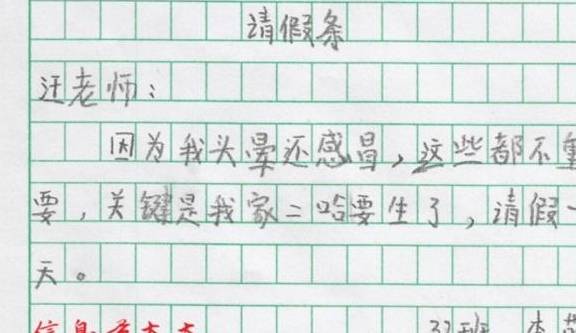 请假条
汪老师：
因为我头晕还感冒，这些都不重
要，关键是我家二哈要生了，请假一
天。
信息
班 李